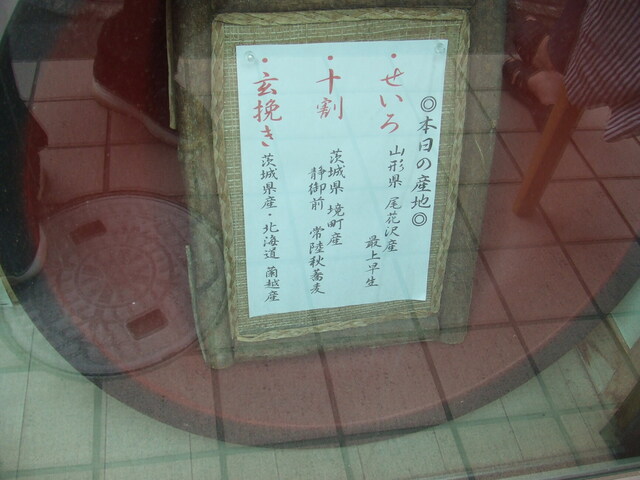 ◎本日の産地◎
・せいろ
山形県 尾花沢産
最上早生
・十割
茨城県 境町産
静御前 常陸秋蕎麦
・玄挽き
茨城県産・北海道 蘭越産